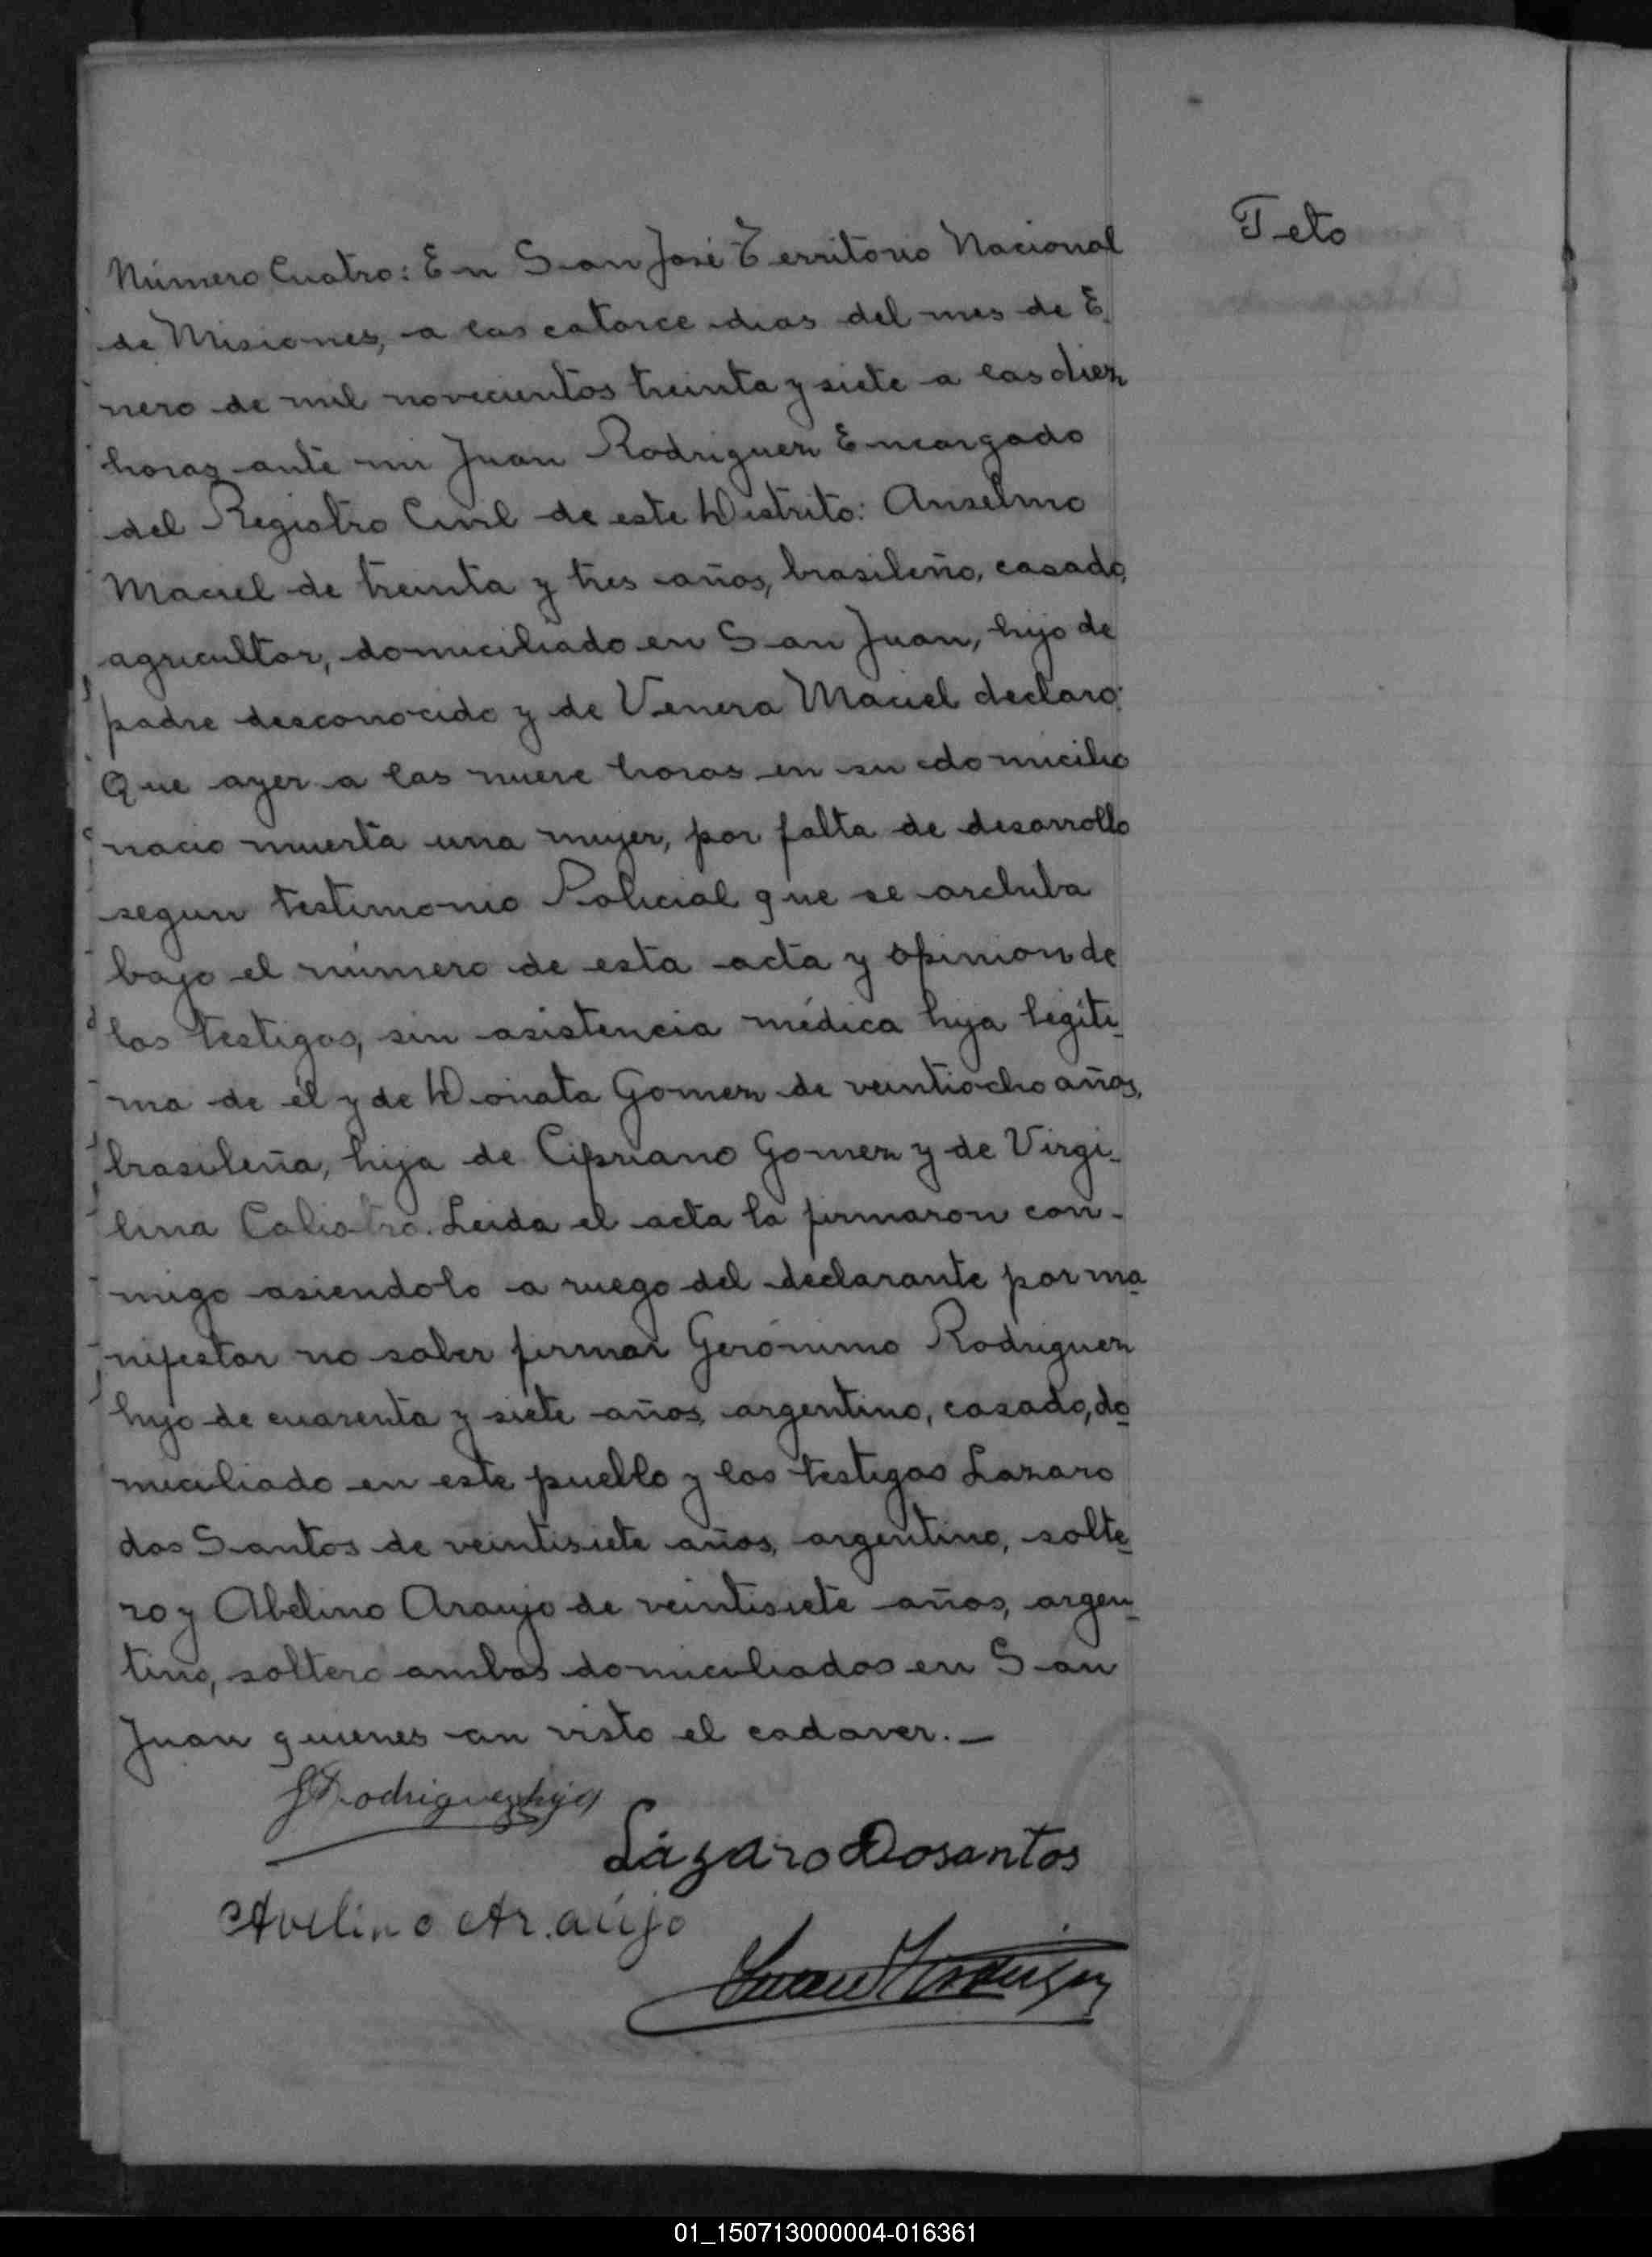 Teto
Número Cuatro: En San José Territorio Nacional
de Misiones, a los catorce dias del mes de E_
nero de mil novecientos treinta y siete a las diez
horas ante mi Juan Rodriguez Encargado
del Registro Civil de este Distrito: Anselmo
Maciel de treinta y tres años, brasileño, casado,
agricultor, domiciliado en San Juan, hijo de
padre desconocido y de Venera Maciel declaro:
Que ayer a las nueve horas en su domicilio
nacio muerta una mujer, por falta de desarrollo
segun testimonio Policial que se archiba
bajo el número de esta acta y opinion de
los testigos, sin asistencia médica hija legiti_
ma de él y de Donata Gomez de veintiocho años,
brasileña, hija de Cipriano Gomez y de Virgi_
lina Calistro. Leida el acta la firmaron con-
migo asiendolo a ruego del declarante por ma_
nifestar no saber firmar Gerónimo Rodriguez
hijo de cuarenta y siete años, argentino, casado, do_
miciliado en este pueblo y los testigos Lazaro
dos Santos de veintisiete años, argentino, solte_
ro y Abelino Araujo de veintisiete años, argen_
tino, soltero ambos domiciliados en San
Juan quienes an visto el cadaver.—
G Rodriguez hijo
Lázaro Dosantos
Avelino Ar.aújo
Juan Rodriguez
01_150713000004-016361